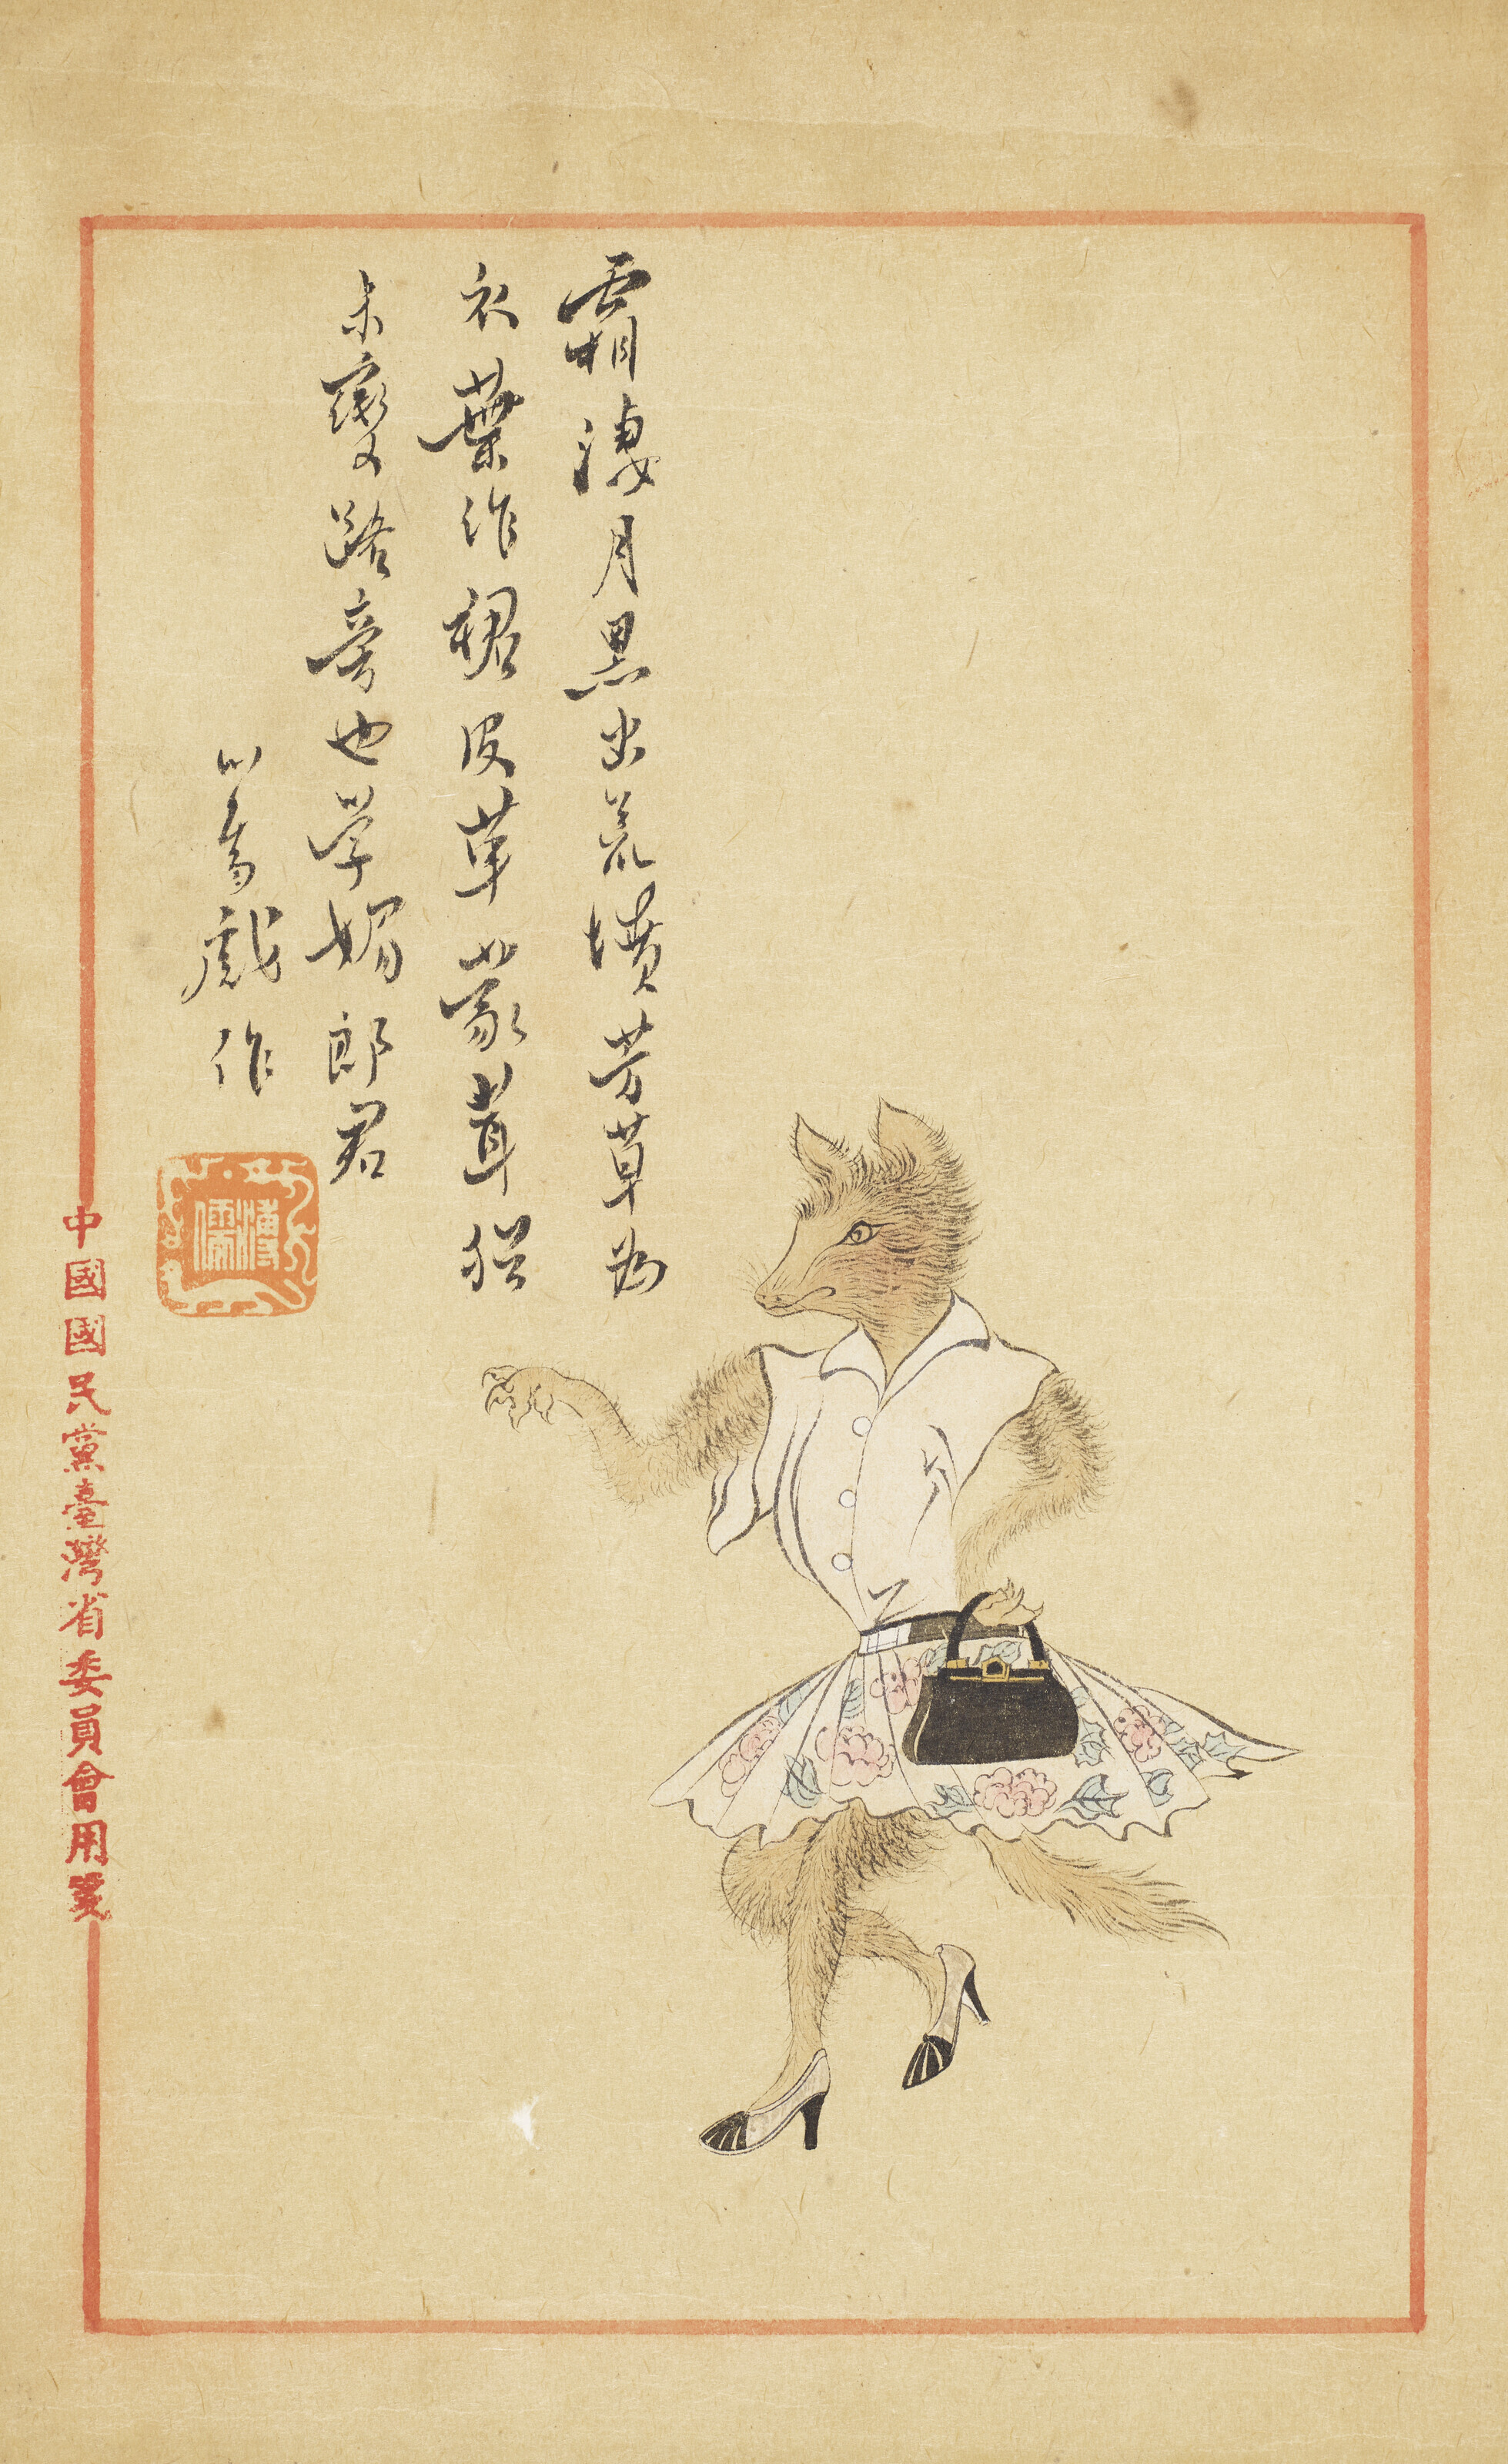 霜淒月黑出荒墳芳草為
衣葉作裙皮革蒙茸猶
未變路旁也学媚郎君
心畬戲作
溥儒
中國國民黨臺灣省委員會用箋